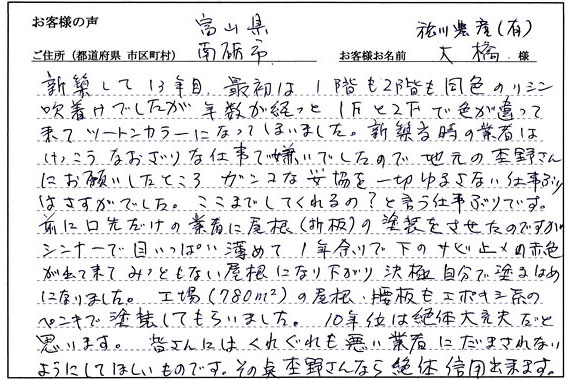 お客様の声
富山県
南砺市
ご住所（都道府県 市区町村）
川農産（有）
お客様お名前 大橋 様
新築して13年目、最初は1階も2階も同色のリシン
吹着けでしたが年数が経つと1Fと2Fで色が違って
来てツートンカラーになってしまいました。新築当時の業者は
けっこうなおざりな仕事で嫌いでしたので地元の杢野さん
にお願いしたところ ガンコな妥協を一切ゆるさない仕事ぶり
はさすがでした。ここまでしてくれるの？と言う仕事ぶりです。
前に口先だけの業者に屋根（折板）の塗装をさせたのですが
シンナーで目いっぱい薄めて1年余りで下のサビ止メの赤色
が出て来てみっともない屋根になり下がり決極自分で塗るはめ
になりました。工場（780m²）の屋根・腰板もエポキシ系の
ペンキで塗装してもらいました。10年位は絶体大丈夫だと
思います。皆さんにはくれぐれも悪い業者にだまされない
ようにしてほしいものです。その点杢野さんなら絶体信用出来ます。